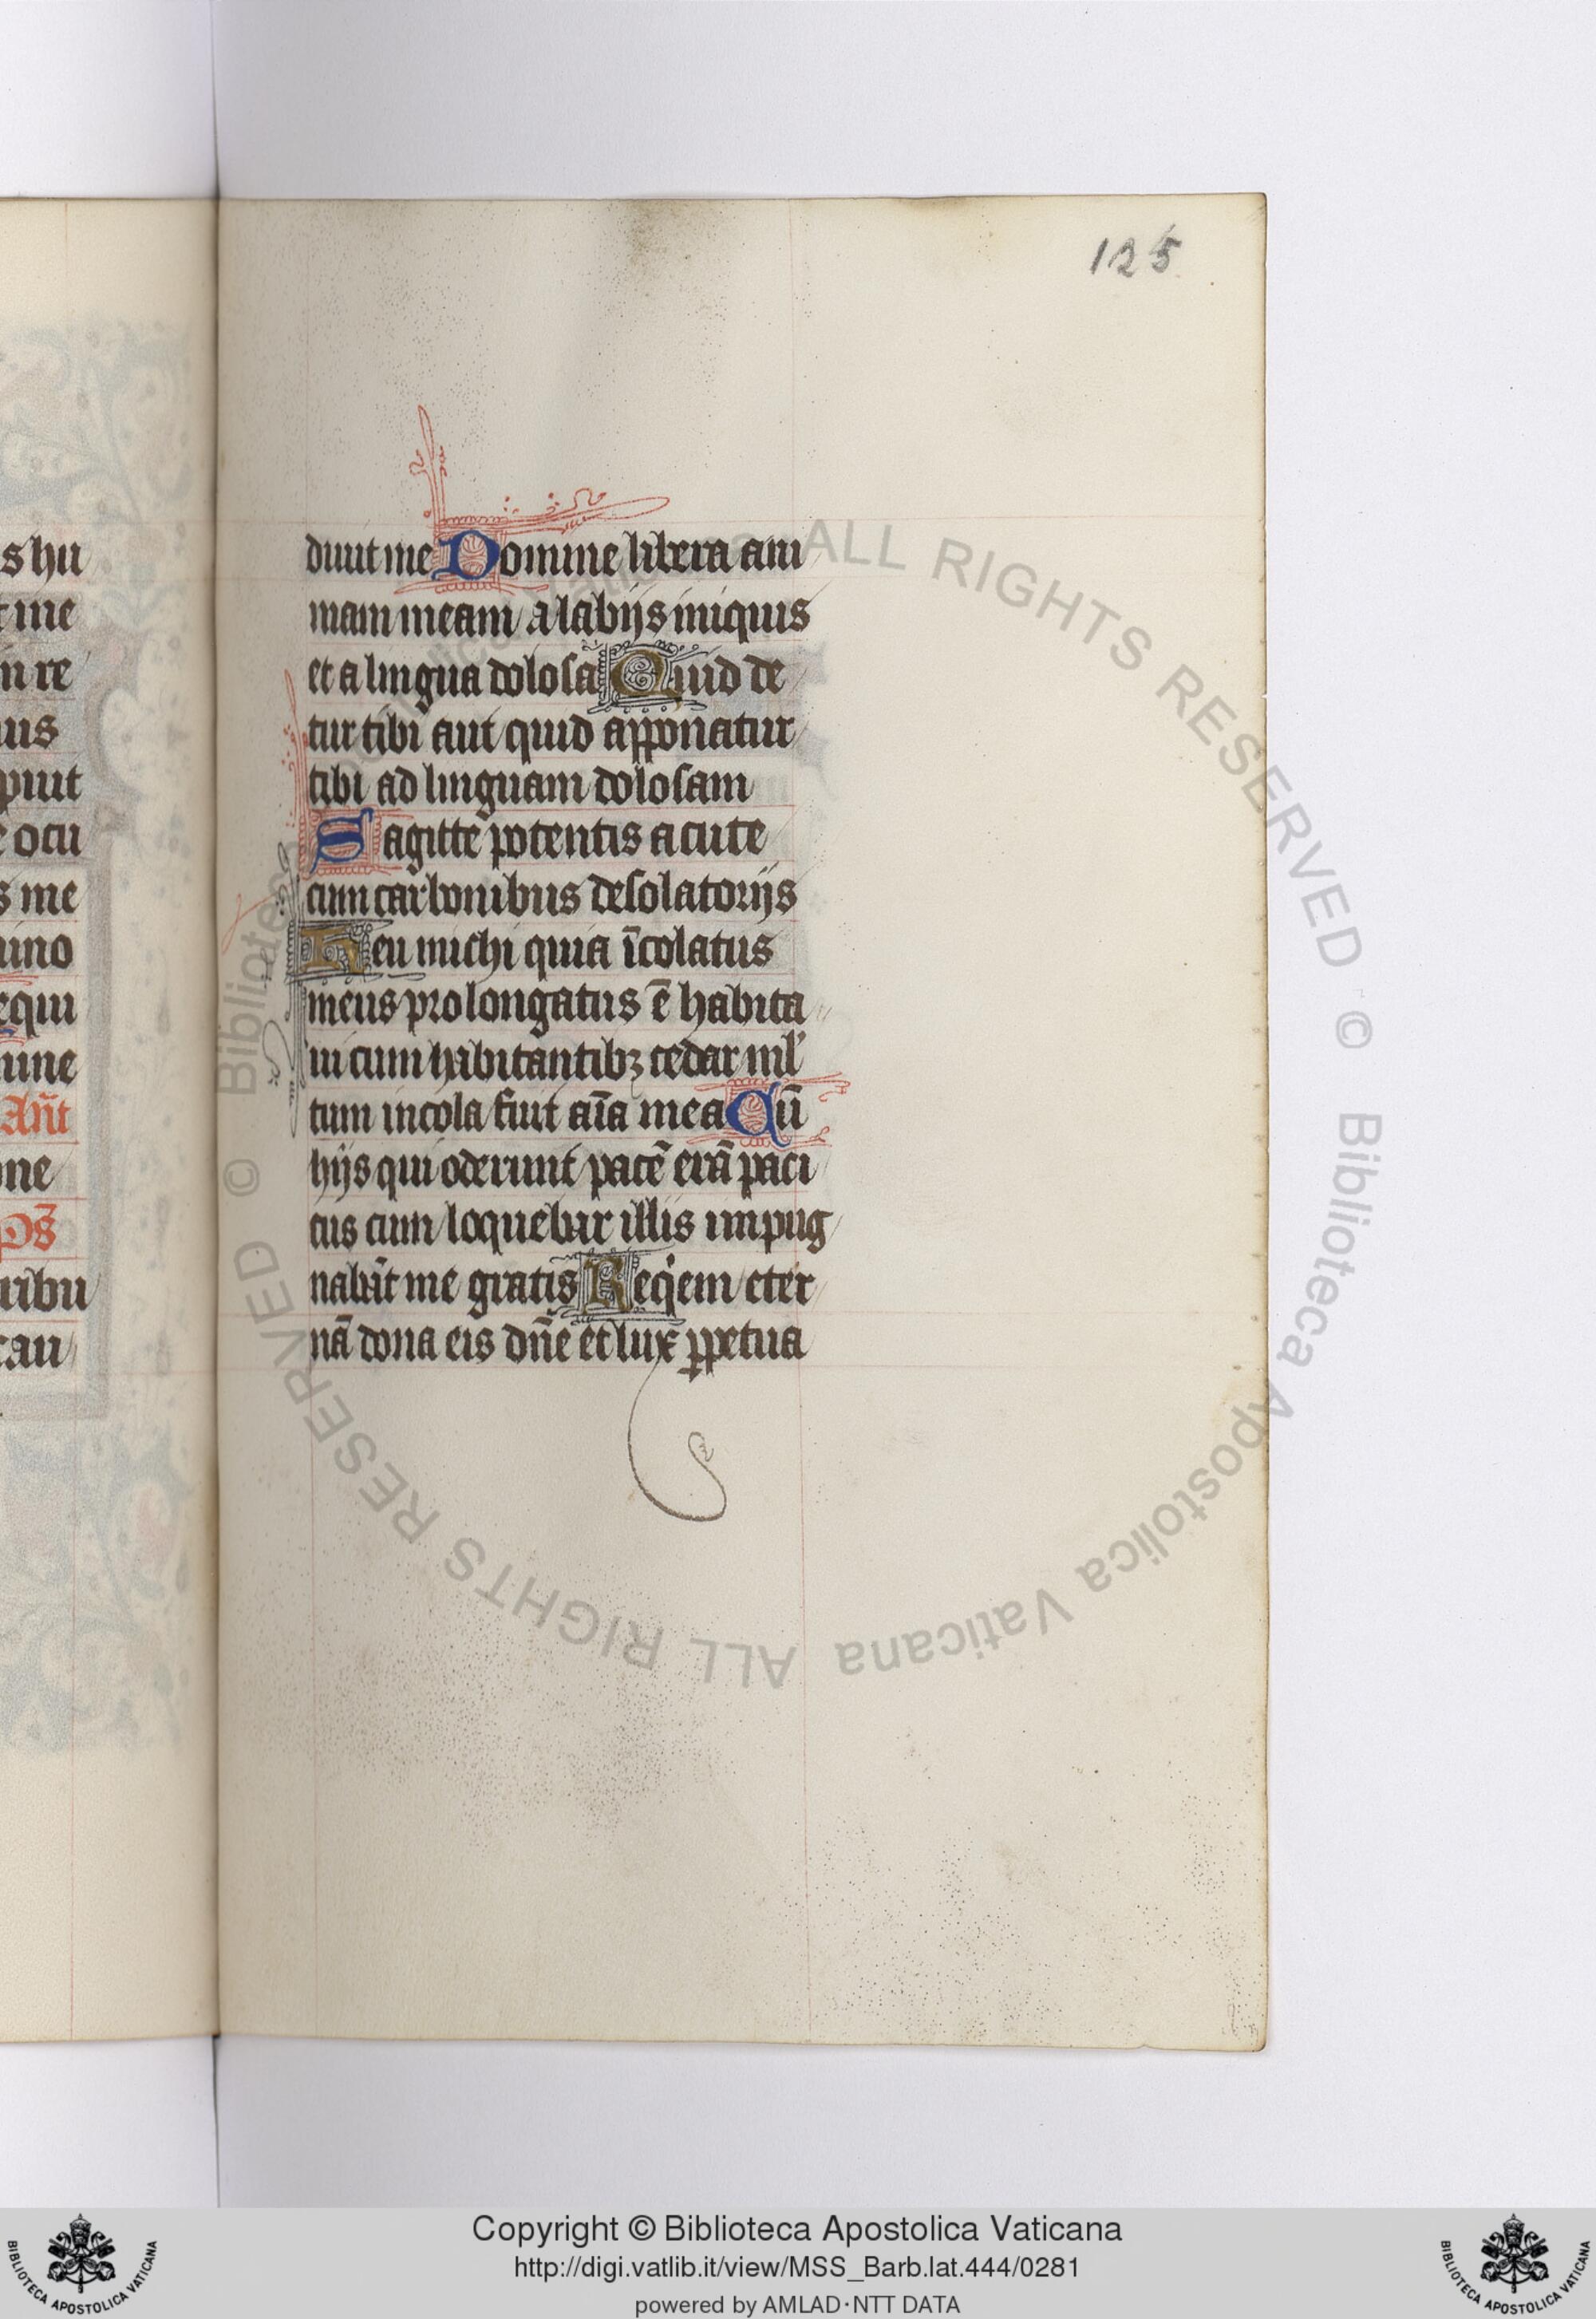 125
s hu
t me
n re
uus
piut
e ocu
s me
uino
equi
nine
Ant̄
one
pō̄s
uribu
cau
diuit me Domine libera ani
mam meam a labijs iniquis
et a lingua dolosa Quid de
tur tibi aut quid apponatur
tibi ad linguam dolosam
Sagitte potentis acute
cum carbonibus desolatorijs
Heu michi quia īcolatus
meus prolongatus ē habita
ui cum habitantibꝫ cedar ml'
tum incola fuit aīa mea Cū
hijs qui oderunt pacē erā paci
cus cum loquebar illis impug
nabāt me gratis Reqͥem eter
nā dona eis dn̄e et lux ꝑpetua
© Biblioteca Apostolica Vaticana ALL RIGHTS RESERVED © Biblioteca Apostolica Vaticana ALL RIGHTS RESERVED
Copyright © Biblioteca Apostolica Vaticana
http://digi.vatlib.it/view/MSS_Barb.lat.444/0281
powered by AMLAD·NTT DATA
BIBLIOTECA APOSTOLICA VATICANA
BIBLIOTECA APOSTOLICA VATICANA